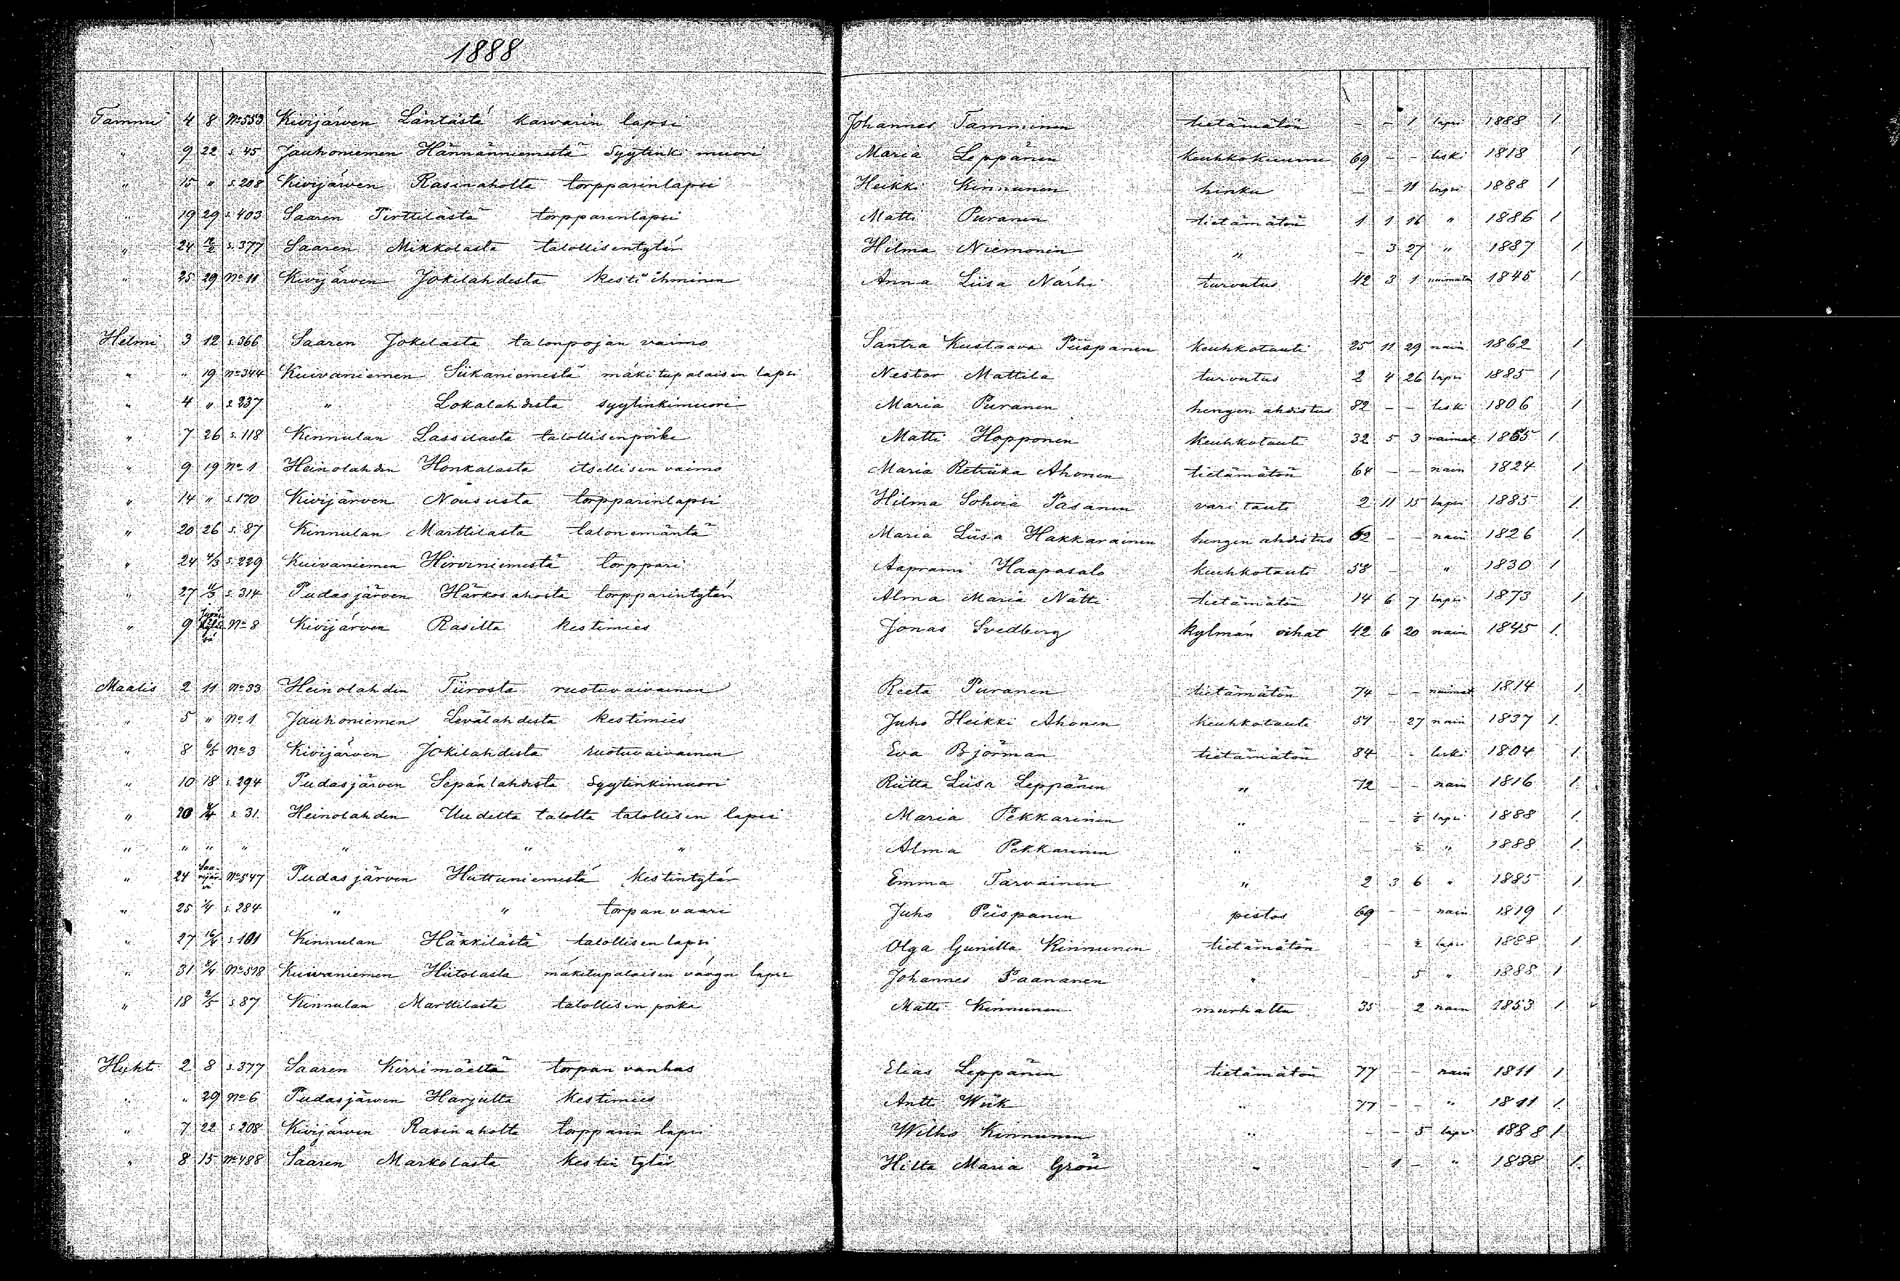 1888
Tammi 4 8 No 553 Kivijärven Läntästä karvarin lapsi Johannes Tamminen tietämätön - - 1 lapsi 1888 1
" 9 22 s. 45 Jauhoniemen Hännänniemestä Syytinki muori Maria Leppänen keuhkokuume 69 - - leski 1818 1
" 15 " s. 208 Kivijärven Rasinaholta torpparinlapsi Heikki Kinnunen hinku - - 11 lapsi 1888 1
" 19 29 s. 403 Saaren Pirttilästä torpparinlapsi Matti Puranen tietämätön 1 1 16 " 1886 1
" 24 s. 377 Saaren Mikkolasta talollisentytär Hilma Niemonen " - 3 27 " 1887 1
" 25 29 No 11 Kivijärven Jokilahdesta kesti ihminen Anna Liisa Närhi turvotus 42 3 1 naimaton 1845 1
Helmi 3 12 s. 366 Saaren Jokelasta talonpojan vaimo Santra Kustaava Piispanen keuhkotauti 25 11 29 nain 1862 1
" " 19 No 344 Kuivaniemen Siikaniemestä mäkitupalaisen lapsi Nestor Mattila turvotus 2 4 26 lapsi 1885 1
" 4 " s. 237 " Lokalahdesta syytinkimuori Maria Puranen hengen ahdistus 82 - - leski 1806 1
" 7 26 s. 118 Kinnulan Lassilasta talollisenpoika Matti Hopponen keuhkotauti 32 5 3 naimat 1855 1
" 9 19 No 1 Heinolahden Honkalasta itsellisen vaimo Maria Retriika Ahonen tietämätön 64 - - nain 1824 1
" 14 " s. 170 Kivijärven Nousüsta torpparinlapsi Hilma Sohvia Pasanen vari tauti 2 11 15 lapsi 1885 1
" 20 26 s. 87 Kinnulan Marttilasta talonemäntä Maria Liisa Hakkarainen hengen ahdistus 62 - - nain 1826 1
" 24 4/3 s. 229 Kuivaniemen Hirviniemestä torppari Aaprami Haapasalo keuhkotauti 58 - - " 1830 1
" 27 s. 314 Pudasjärven Härkosahosta torpparintytär Alma Maria Nätti tietämätön 14 6 7 lapsi 1873 1
" 9 No 8 Kivijärven Rasilta kestimies Jonas Svedberg kylmän vihat 42 6 20 nain 1845 1.
Maalis 2 11 No 33 Heinolahden Tiirosta ruotuvaivainen Reeta Puranen tietämätön 74 - - naimat 1814 1
" 5 " No 1 Jauhoniemen Levälahdesta kestimies Juho Heikki Ahonen keuhkotauti 51 27 nain 1837 1.
" 8 No 3 Kivijärven Jokilahdesta ruotuvaivainen Eva Björman tietämätön 84 - - leski 1804 1
" 10 18 s. 294 Pudasjärven Sepänlahdesta Syytinkimuori Riitta Liisa Leppänen " 72 - - nain 1816 1
" 20 s. 31 Heinolahden Uudelta talolta talollisen lapsi Maria Pekkarinen " - - ½ lapsi 1888 1
" " " " " " " Alma Pekkarinen " - ½ " 1888 1
" 24 No 547 Pudasjärven Huttuniemestä kestintytär Emma Tarvainen " 2 3 6 " 1885 1
" 25 s. 284 " " torpan vaari Juho Piispanen pistos 69 - - nain 1819 1
" 27 s. 101 Kinnulan Häkkilästä talollisen lapsi Olga Gunilla Kinnunen tietämätön - ½ lapsi 1888 1
" 31 No 518 Kuivaniemen Hiitolasta mäkitupalaisen vävyn lapsi Johannes Paananen " - 5 " 1888 1
" 18 s. 87 Kinnulan Marttilasta talollisen poika Matti Kinnunen murhattu 35 - 2 nain 1853 1
Huht 2 8 s. 377 Saaren Kirrimäeltä torpan vanhus Elias Leppänen tietämätön 77 - - nain 1811 1
" " 29 No 6 Pudasjärven Harjulta kestimies Antti Wiik " 77 - - " 1811 1.
" 7 22 s. 208 Kivijärven Rasinaholta torpparin lapsi Wilho Kinnunen " - - 5 lapsi 1888 1
" 8 15 No 488 Saaren Markolasta kestin tytär Hilta Maria Grön " - 1 - " 1888 1.